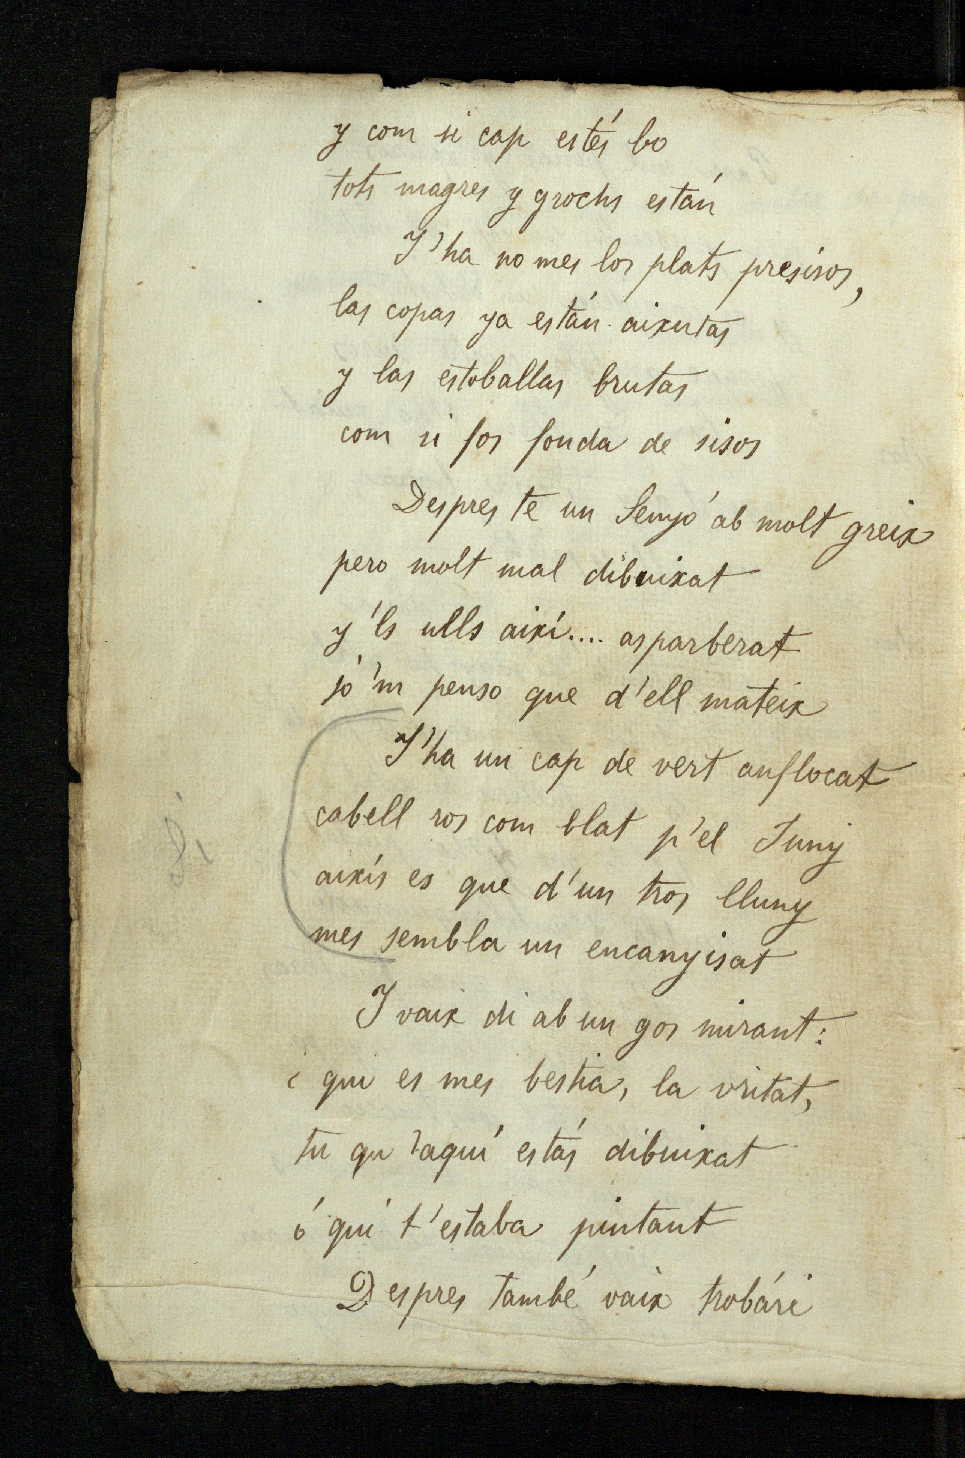 y com si cap estés bo
tots magres y grochs están
Y'ha no mes los plats presisos,
las copas ya están aixutas
y las estoballas brutas
com si fos fonda de sisos
Despres te un Senyó ab molt greix
pero molt mal dibuixat
y 'ls ulls aixi.... asparberat
jo 'm penso que d'ell mateix
Y'ha un cap de vert anflocat
cabell ros com blat p'el Juny
aixís es que d'un tros lluny
mes sembla un encanyisat
Y vaix di ab un gos mirant:
¿ qui es mes bestia, la vritat,
tu qu 'aquí estás dibuixat
ó qui t'estaba pintant
Despres també vaix trobári